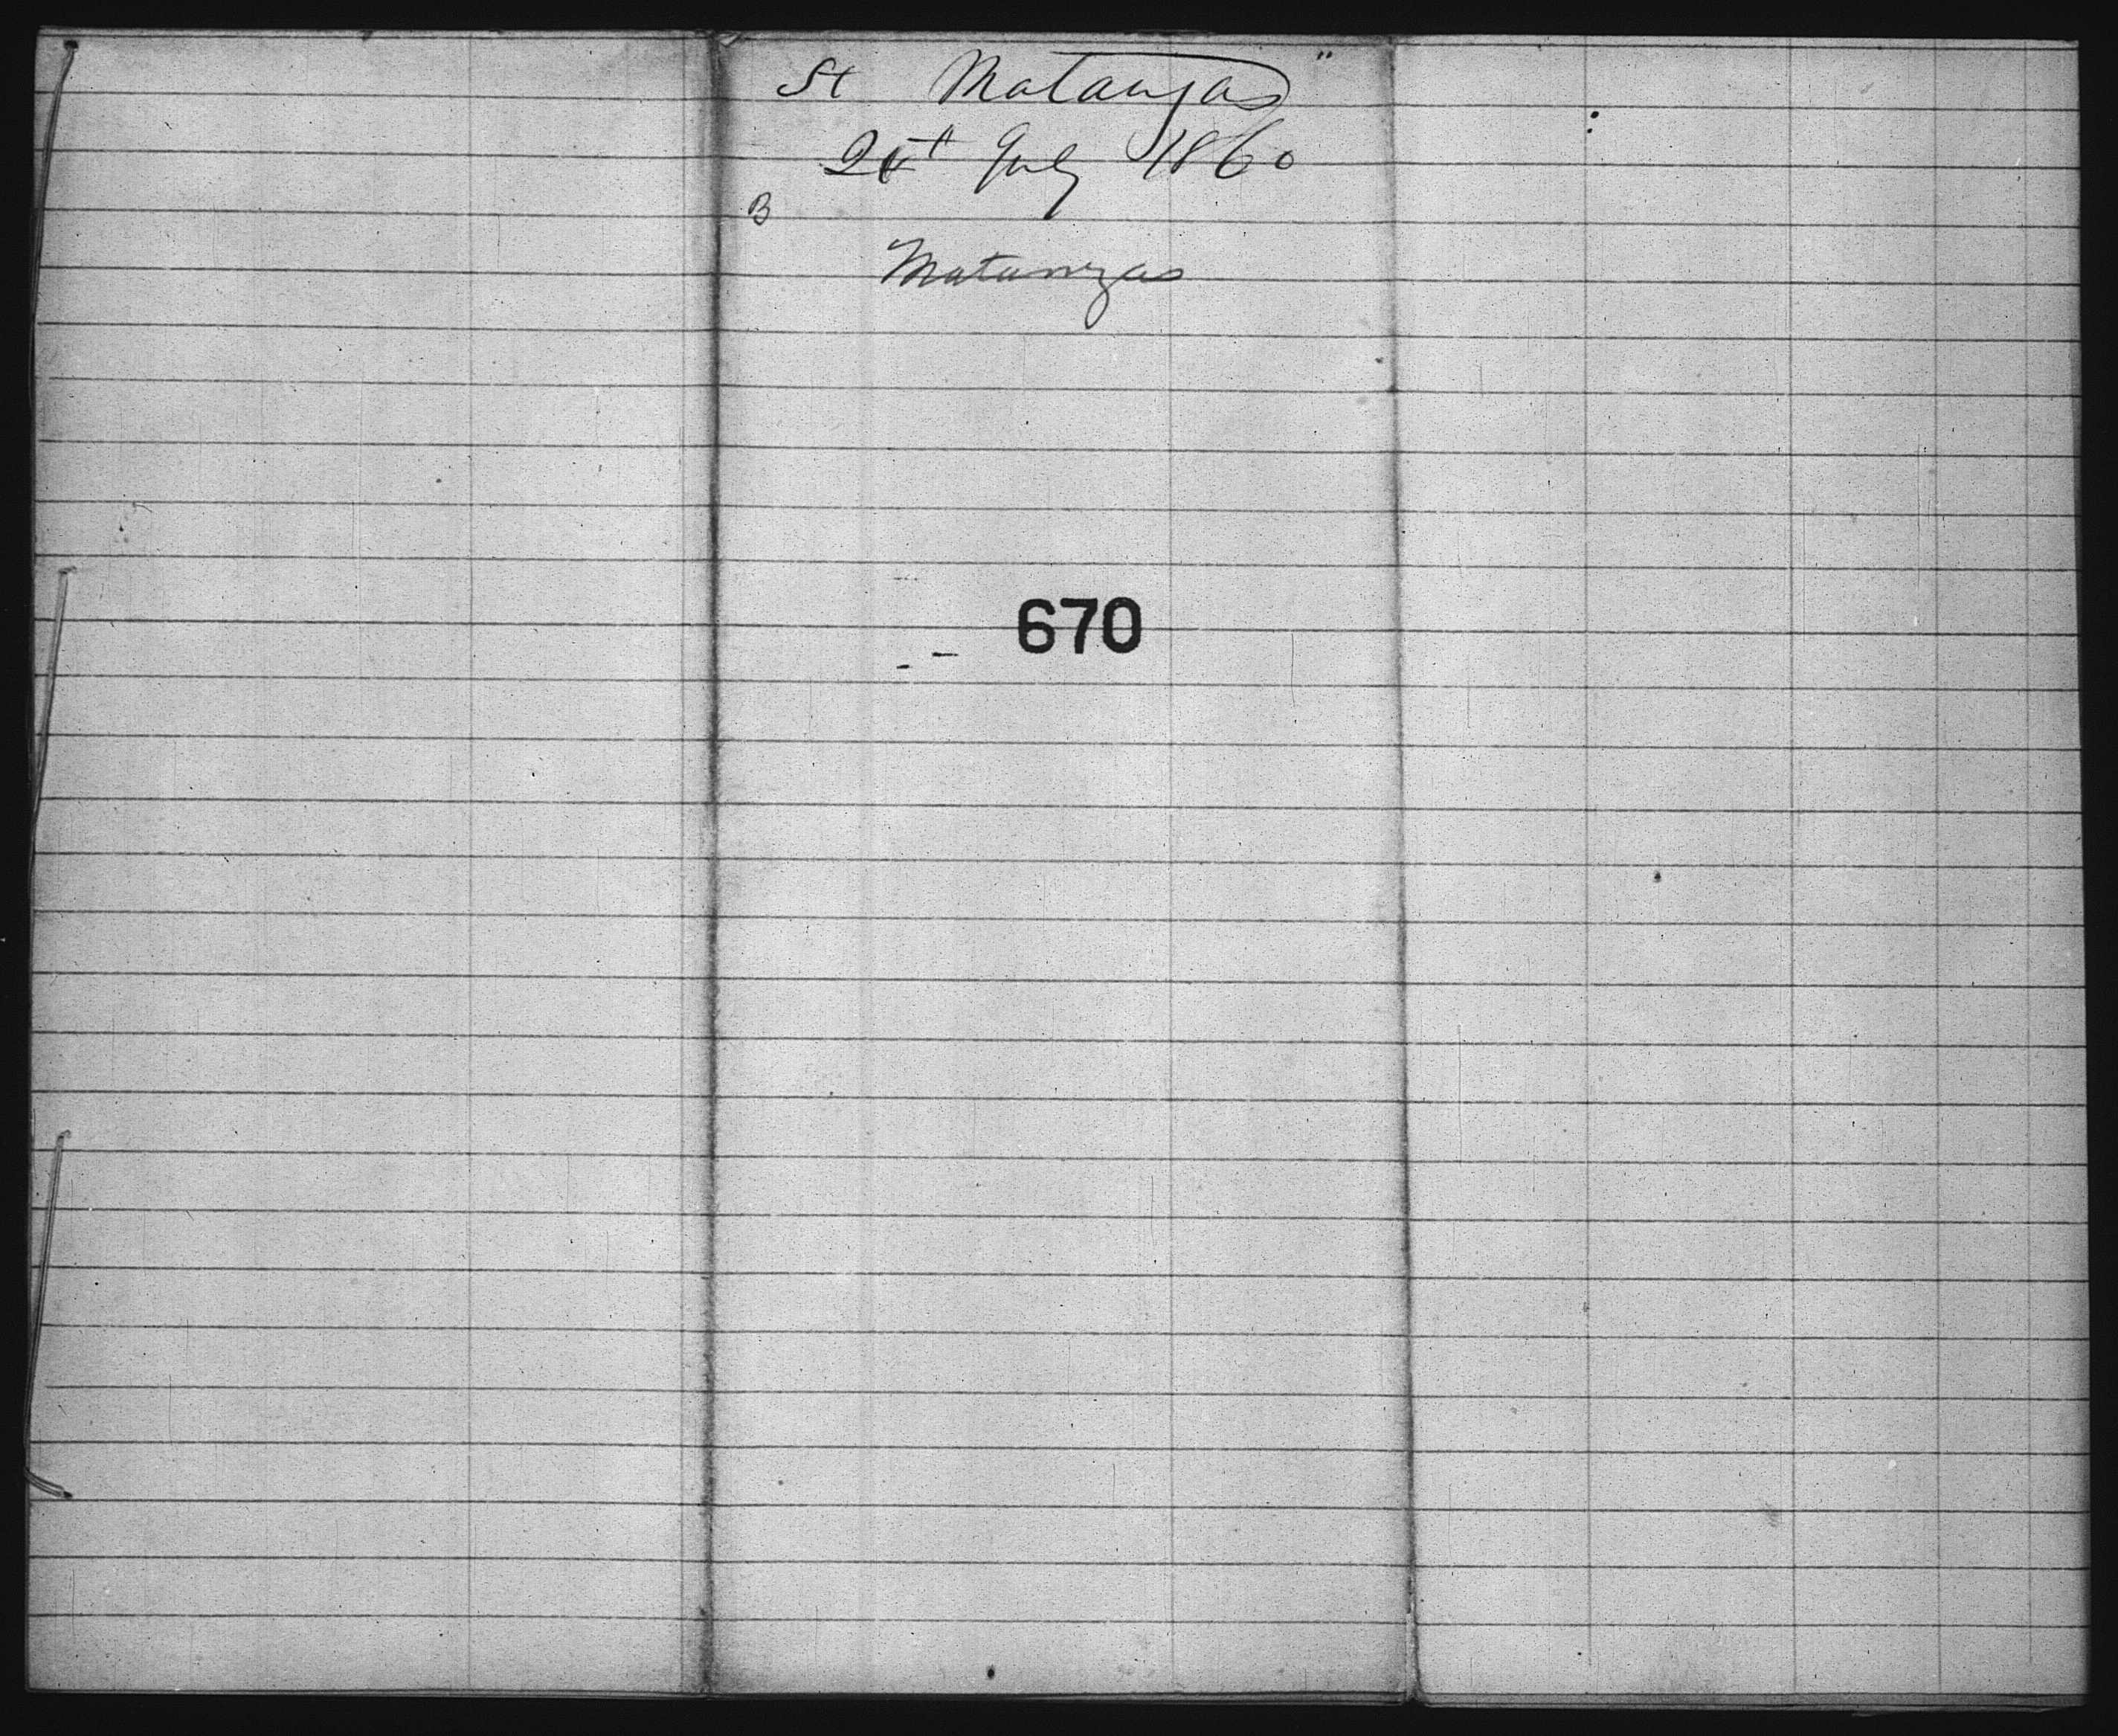 St Matanzas"
21st July 1860
B
Matanzas
670